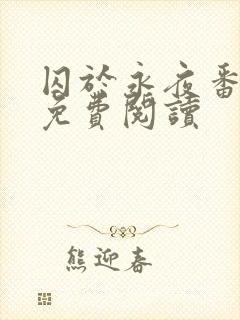 囚於永夜番
免費閱讀
熊迎春